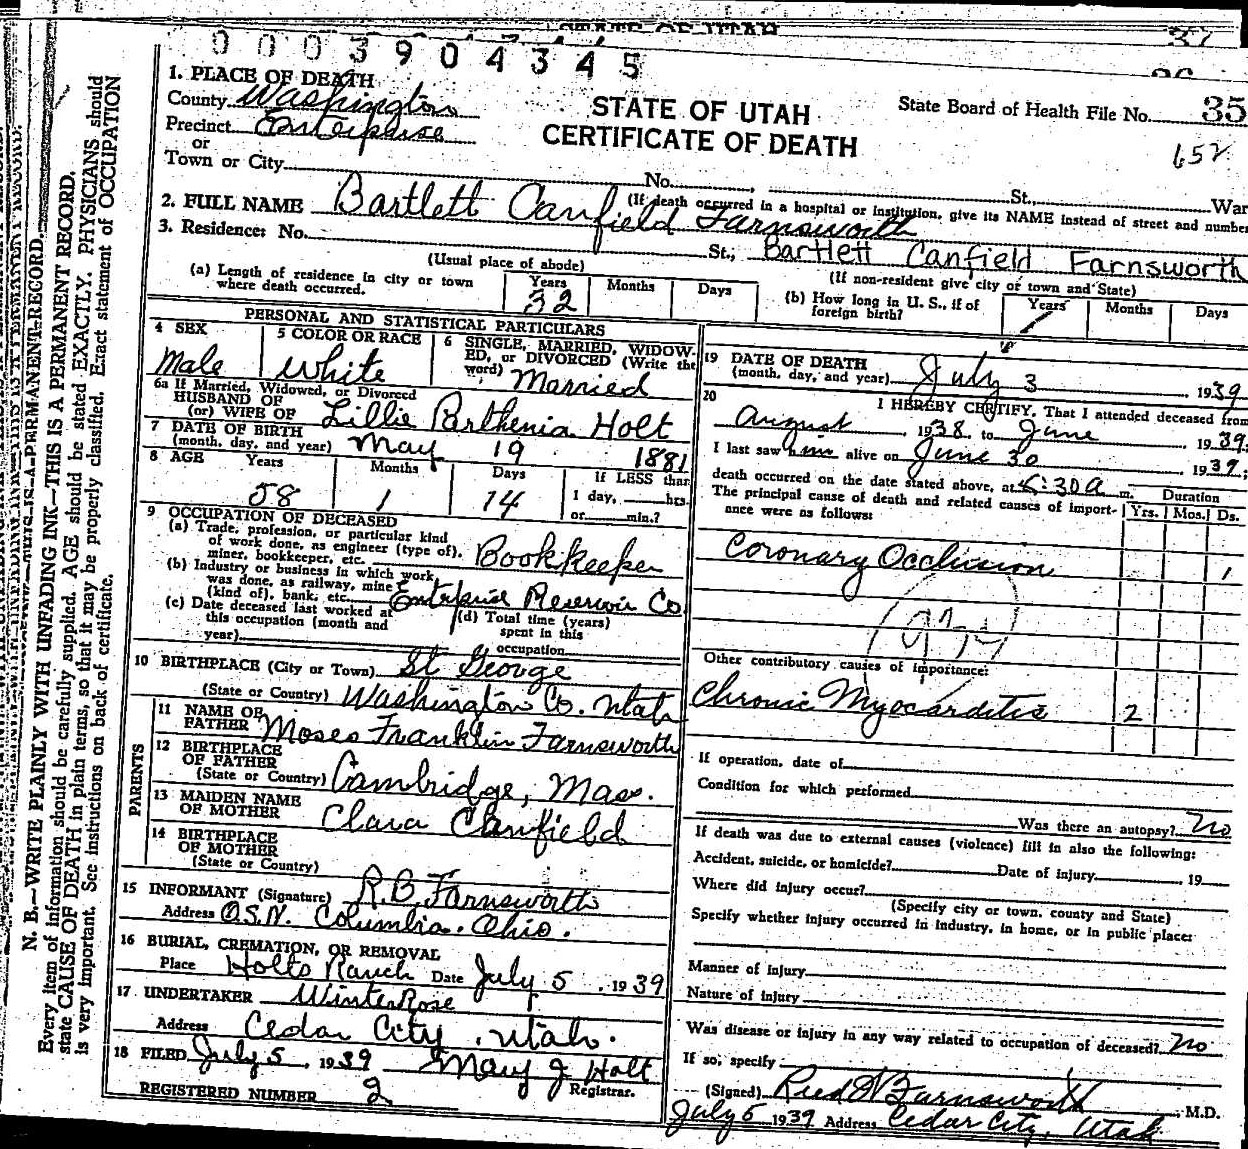 STATE OF UTAH
0003904345
1. PLACE OF DEATH
County Washington
Precinct Enterprise
or
Town or City
STATE OF UTAH
CERTIFICATE OF DEATH
State Board of Health File No. 35
652
No. St., War
(If death occurred in a hospital or institution, give its NAME instead of street and number
2. FULL NAME Bartlett Canfield Farnsworth
3. Residence: No. St., Bartlett Canfield Farnsworth
(Usual place of abode)
(If non-resident give city or town and State)
(a) Length of residence in city or town where death occurred. Years 32 Months Days
(b) How long in U. S., if of foreign birth? Years Months Days
PERSONAL AND STATISTICAL PARTICULARS
4 SEX Male
5 COLOR OR RACE White
6 SINGLE, MARRIED, WIDOWED, or DIVORCED (Write the word) Married
6a If Married, Widowed, or Divorced
HUSBAND OF
(or) WIFE OF Lillie Parthenia Holt
7 DATE OF BIRTH
(month, day, and year) May 19 1881
8 AGE Years 58 Months 1 Days 14 If LESS than
1 day, hrs.
or min.?
9 OCCUPATION OF DECEASED
(a) Trade, profession, or particular kind
of work done, as engineer (type of),
miner, bookkeeper, etc. Bookkeeper
(b) Industry or business in which work
was done, as railway, mine
(kind of), bank, etc. Enterprise Reservoir Co
(c) Date deceased last worked at
this occupation (month and
year)
(d) Total time (years)
spent in this
occupation
10 BIRTHPLACE (City or Town) St George
(State or Country) Washington Co. Utah
PARENTS
11 NAME OF
FATHER Moses Franklin Farnsworth
12 BIRTHPLACE
OF FATHER
(State or Country) Cambridge, Mass.
13 MAIDEN NAME
OF MOTHER Clara Canfield
14 BIRTHPLACE
OF MOTHER
(State or Country)
15 INFORMANT (Signature) R.B. Farnsworth
Address O.S.N. Columbia. Ohio.
16 BURIAL, CREMATION, OR REMOVAL
Place Holts Ranch Date July 5, 1939
17 UNDERTAKER WinterRose
Address Cedar City, Utah.
18 FILED July 5, 1939 Mary J Holt
Registrar.
REGISTERED NUMBER 2
19 DATE OF DEATH
(month, day, and year) July 3 1939
20 I HEREBY CERTIFY, That I attended deceased from
August 1938, to June, 1939.
I last saw him alive on June 30, 1939;
death occurred on the date stated above, at :30a m.
The principal cause of death and related causes of importance were as follows:
Duration
Yrs. Mos. Ds.
Coronary Occlusion 1
Other contributory causes of importance:
Chronic Myocarditis 2
If operation, date of
Condition for which performed
Was there an autopsy? No
If death was due to external causes (violence) fill in also the following:
Accident, suicide, or homicide? Date of injury, 19
Where did injury occur?
(Specify city or town, county and State)
Specify whether injury occurred in industry, in home, or in public place:
Manner of injury
Nature of injury
Was disease or injury in any way related to occupation of deceased? No
If so, specify
(Signed) Reed W Farnsworth, M.D.
July 5 1939 Address Cedar City, Utah
N. B.—WRITE PLAINLY WITH UNFADING INK—THIS IS A PERMANENT RECORD.
Every item of information should be carefully supplied. AGE should be stated EXACTLY. PHYSICIANS should
state CAUSE OF DEATH in plain terms, so that it may be properly classified. Exact statement of OCCUPATION
is very important. See instructions on back of certificate.